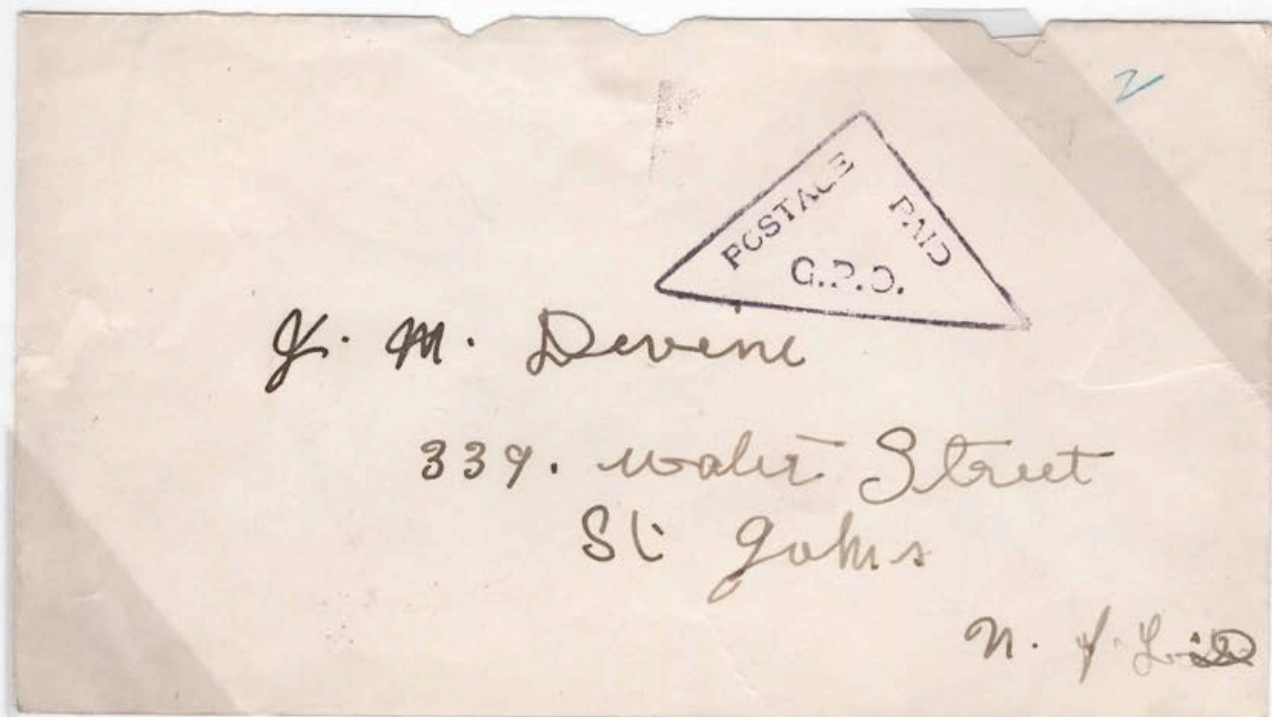 2
POSTAGE PAID
G.P.O.
J. M. Devine
339. Water Street
St Johns
N. F. L D